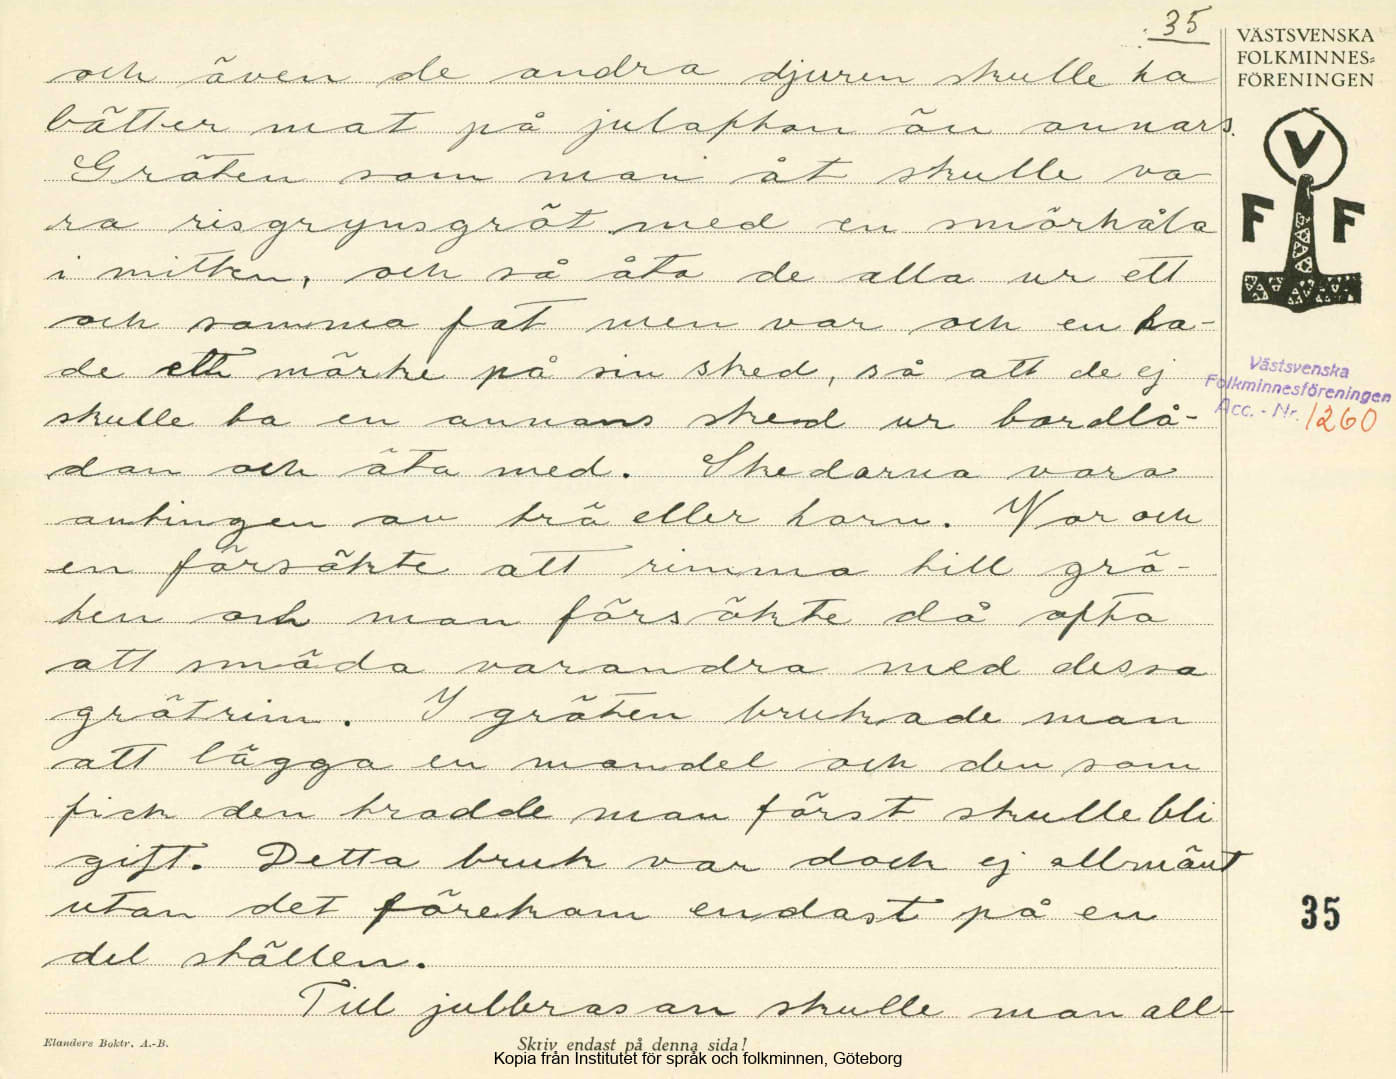 35
och även de andra djuren skulle ha
bätter mat på julafton än annars.
Gröten som man åt skulle va
ra risgrynsgröt med en smörhåla
i mitten, och så åto de alla ur ett
och samma fat men var och en ha-
de ett märke på sin sked, så att de ej
skulle ta en annans sked ur bordlå-
dan och äta med. Skedarna voro
antingen av trä eller horn. Var och
en försökte att rimma till grö-
ten och man försökte då ofta
att smäda varandra med dessa
grötrim. I gröten brukade man
att lägga en mandel och den som
fick den trodde man först skulle bli
gift. Detta bruk var dock ej allmänt
utan det förekom endast på en
del ställen.
Till julbrasan skulle man all-
VÄSTSVENSKA
FOLKMINNES=
FÖRENINGEN
V
F F
Västsvenska
Folkminnesföreningen
Acc. - Nr. 1260
35
Elanders Boktr. A.-B.
Skriv endast på denna sida!
Kopia från Institutet för språk och folkminnen, Göteborg